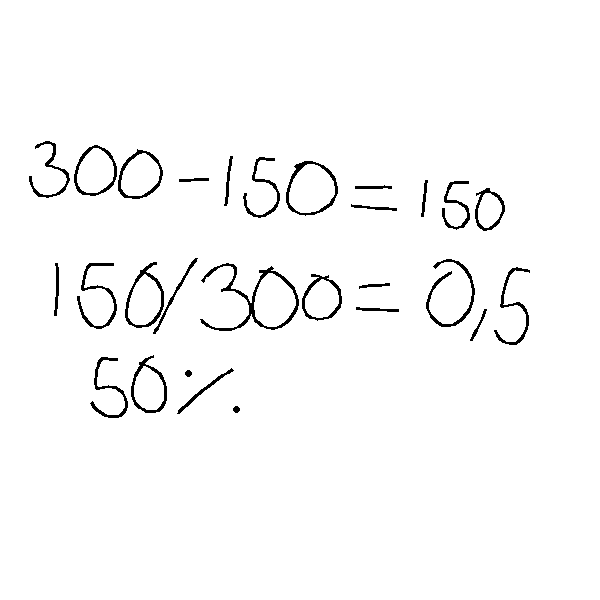 300-150=150
150/300=0,5
50%